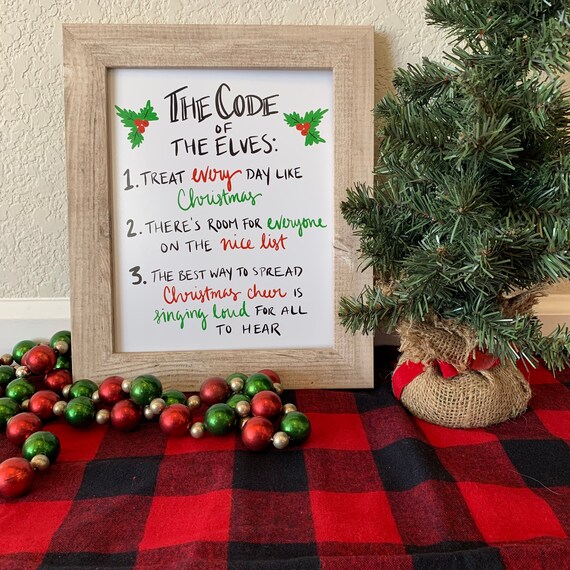 THE CODE
OF
THE ELVES:
1. TREAT every DAY LIKE
Christmas
2. THERE'S ROOM FOR everyone
ON THE nice list
3. THE BEST WAY TO SPREAD
Christmas cheer IS
singing loud FOR ALL
TO HEAR